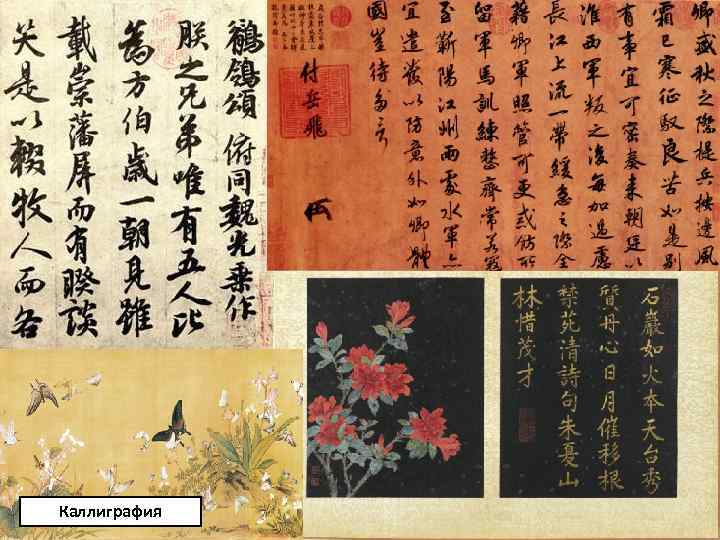 鶺鴒頌 俯同魏光乘作
朕之兄弟唯有五人比
為方伯歲一朝見雖
載崇藩屏而有睽談
笑是以輟牧人而各
卿盛秋之際提兵按邊風
霜已寒征馭良苦如是別
有事宜可密奏來朝廷以
淮西軍叛之後每加過慮
長江上流一帶緩急之際全
藉卿軍照管可更戒飭所
留軍馬訓練整齊常若寇
至蘄陽江州兩處水軍亦
宜遣發以防意外如卿體
國豈待多言
付岳飛
石巖如火本天台秀
質丹心日月催移根
禁苑清詩句朱憂山
林惜茂才
Каллиграфия